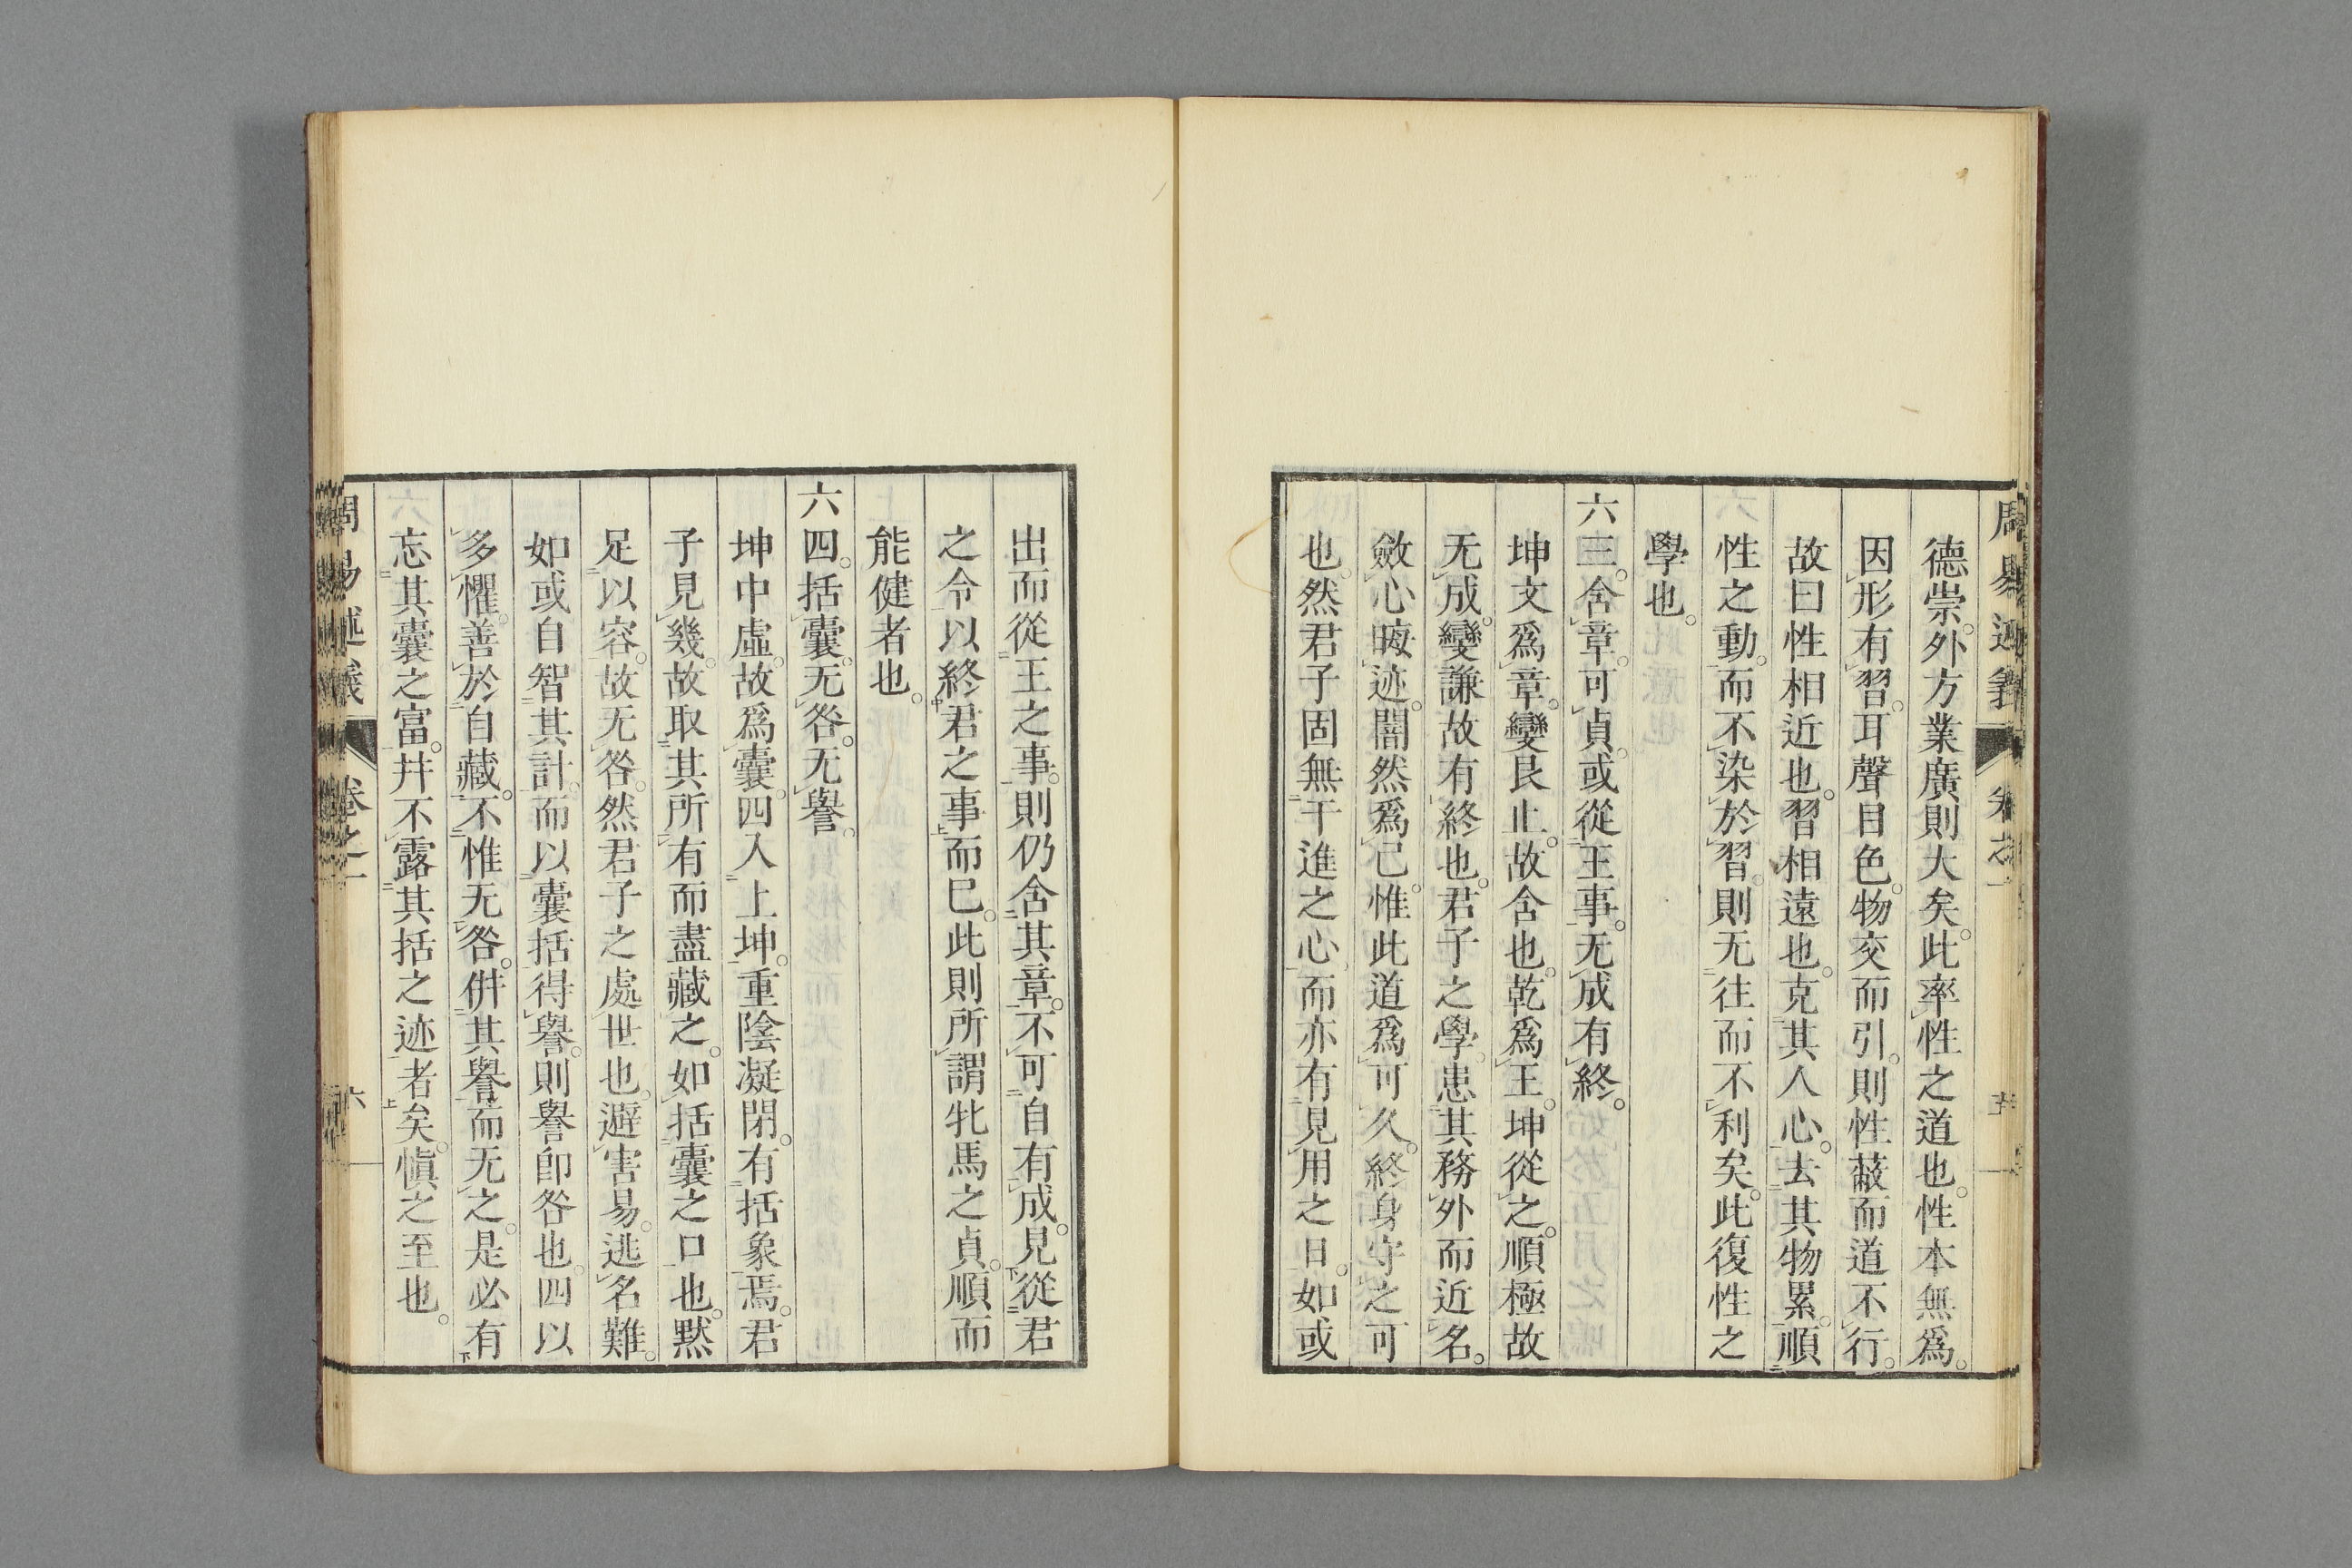 德崇。外方業廣則大矣。此率性之道也。性本無爲。
因形有習。耳聲目色。物交而引。則性蔽而道不行。
故曰性相近也。習相遠也。克其人心。去其物累。順
性之動。而不染於習。則无往而不利矣。此復性之
學也。
六三。含章。可貞。或從王事。无成有終。
坤文爲章。變艮止。故含也。乾爲王。坤從之。順極故
无成。變謙故有終也。君子之學。患其務外而近名。
斂心晦迹。闇然爲己。惟此道爲可久。終身守之可
也。然君子固無干進之心。而亦有見用之日。如或
出而從王之事。則仍含其章。不可自有成。見從君
之令以終君之事而已。此則所謂牝馬之貞。順而
能健者也。
六四。括囊。无咎。无譽。
坤中虛。故爲囊。四入上坤。重陰凝閉。有括象焉。君
子見幾。故取其所有而盡藏之。如括囊之口也。黙
足以容。故无咎。然君子之處世也。避害易。逃名難。
如或自智其計。而以囊括得譽。則譽卽咎也。四以
多懼。善於自藏。不惟无咎。倂其譽而无之。是必有
忘其囊之富。幷不露其括之迹者矣。愼之至也。
周易述義 卷之一 六